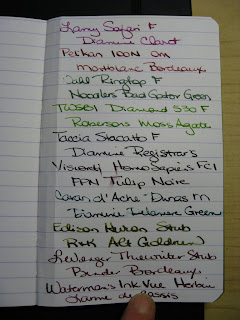 Lamy Safari F
Diamine Claret
Pelikan 100N OM
Montblanc Bordeaux
Cahl Ringtop F
Noodlers Bad Gator Green
TWSBI Diamond 530 F
Robersons Moss Agate
Taccia Staccato F
Diamine Registrars
Visconti Homo Sapiens F
FPN Tulip Noire
Caran d'Ache Dunas
Diamine Delamere Green
Edison Huron Stub
R+K Alt Goldgrun
Levenger Truewriter Stub
Binder Bordeaux
Waterman's Ink Vue
Larme de Cassis